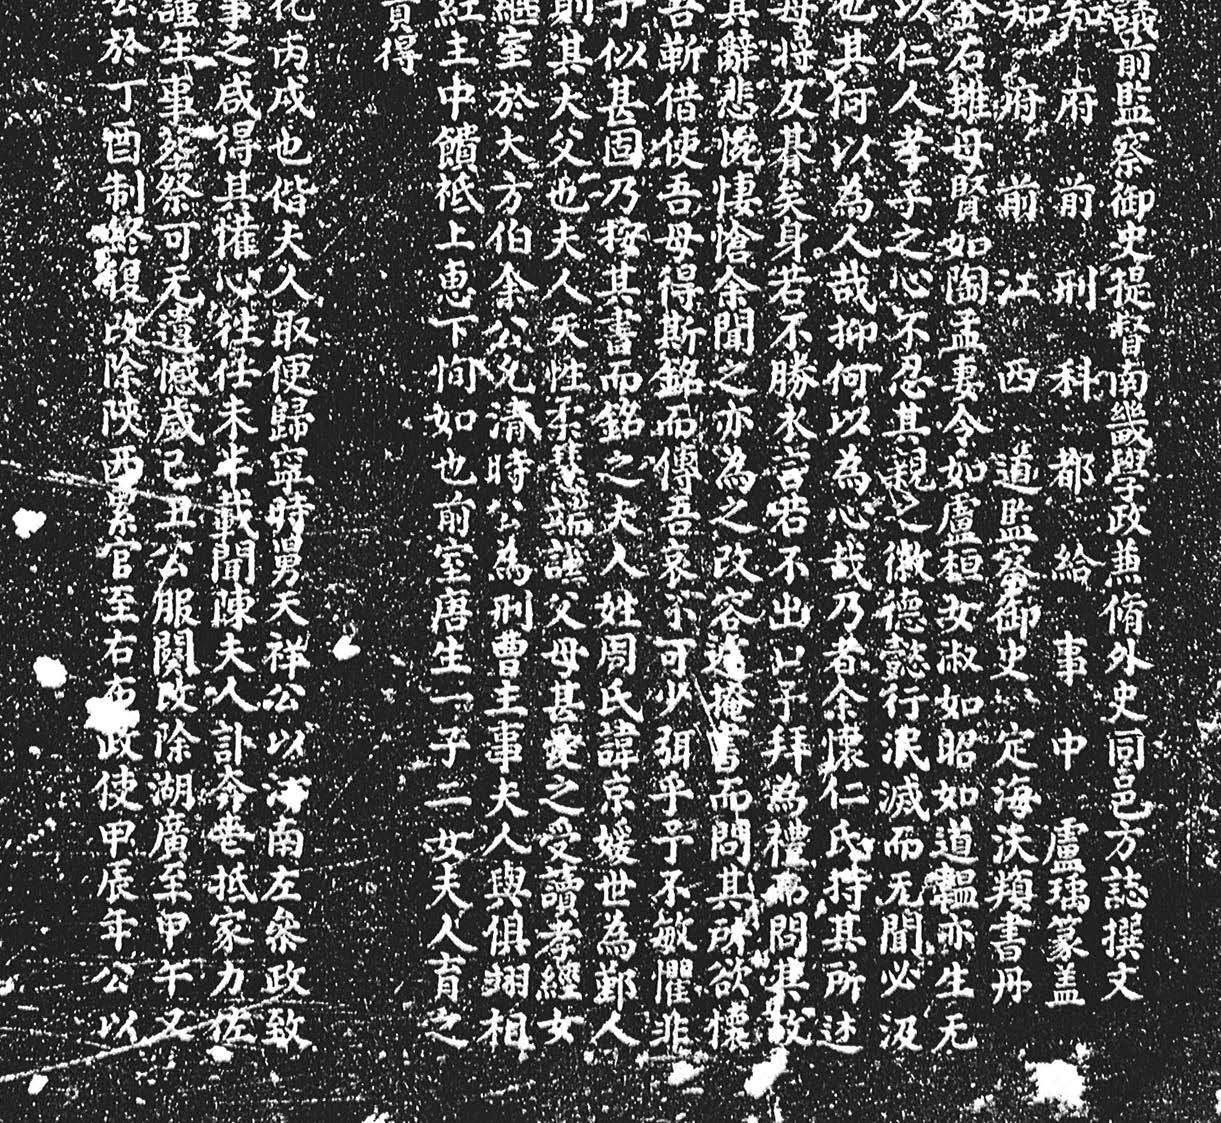 議前監察御史提督南畿學政兼脩外史同邑方誌撰文
知府前刑科都給事中盧瑀篆盖
知府前江西道監察御史定海沃頖書丹
金石雖母賢如陶孟妻令如盧桓女淑如昭如道韞亦生无
以仁人孝子之心不忍其親之徽德懿行泯滅而无聞必汲
也其何以為人哉抑何以為心哉乃者余懷仁氏持其所述
母将及朞矣身若不勝衣言若不出口予拜為禮而問其故
其辭悲惋悽愴余聞之亦為之改容遂掩書而問其所欲懷
吾斬借使吾母得斯銘而傳吾哀亦可少弭乎予不敏懼非
予似甚固乃按其書而銘之夫人姓周氏諱京媛世為鄞人
則其大父也夫人天性柔惠端謹父母甚愛之受讀孝經女
継室於大方伯余公允清時公為刑曹主事夫人與俱翊相
紅主中饋祗上惠下恂如也前室唐生一子二女夫人育之
貢得
化丙戍也偕夫人取便歸寧時男天祥公以河南左叅政致
事之咸得其懽心徃任未半載聞陳夫人訃奔䘮抵家力佐
謹生事䓑祭可无遺憾歲己丑公服闋改除湖廣至甲午又
公於丁酉制終復改除陝西累官至右布政使甲辰年公以